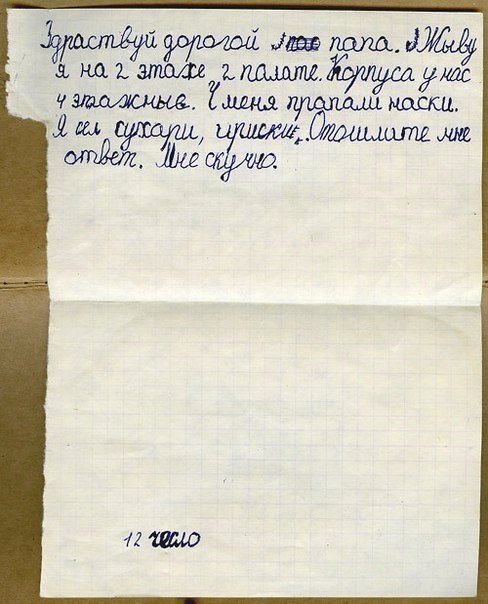 Здраствуй дорогой папа. Жыву
я на 2 этаже 2 палате. Корпуса у нас
4 этажныв. У меня прапали наски.
Я ел сухари, ириски. Отошлите мне
ответ. Мне скучно.
12 чесло